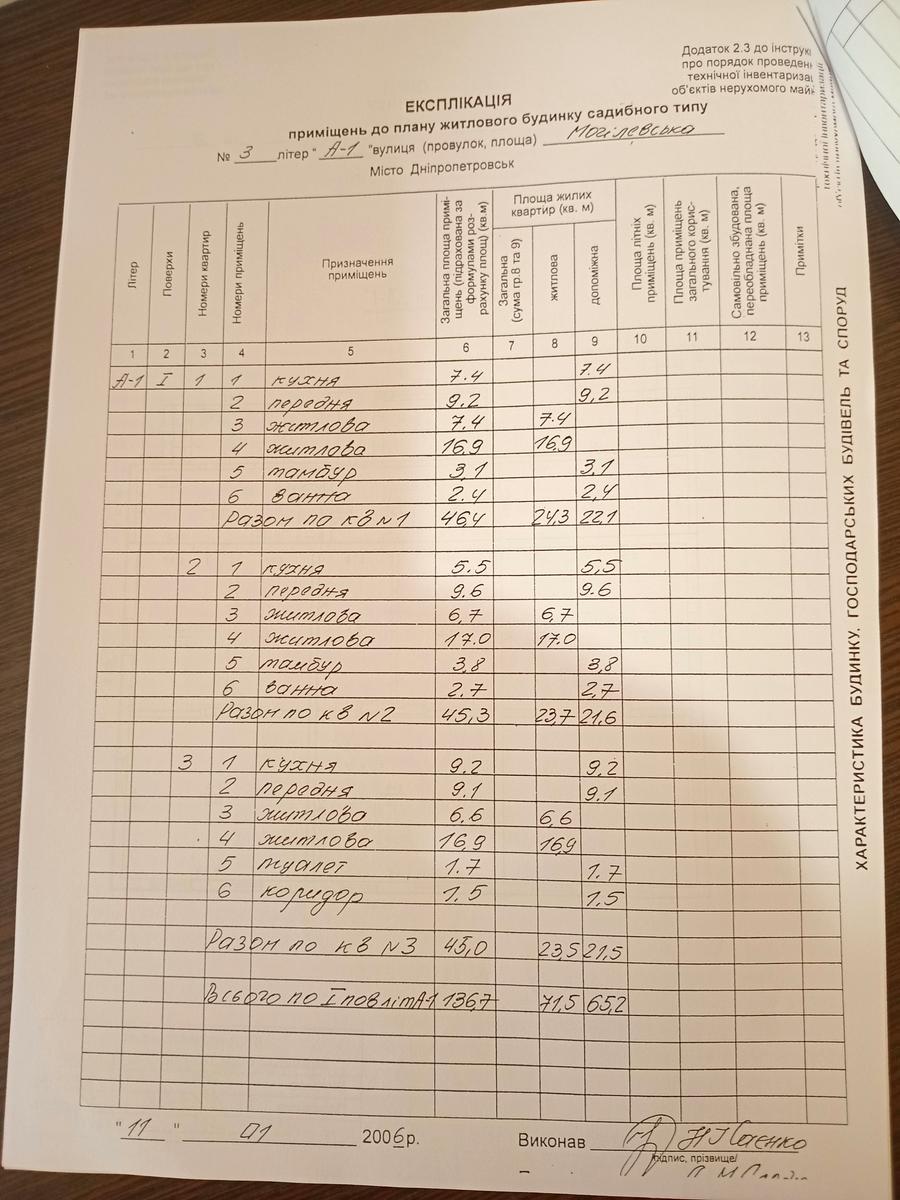 Додаток 2.3 до інструк
про порядок проведен
технічної інвентариза
об'єктів нерухомого май
ЕКСПЛІКАЦІЯ
приміщень до плану житлового будинку садибного типу
№ 3 літер " А-1 "вулиця (провулок, площа) Могілевська
Місто Дніпропетровськ
Літер Поверхи Номери квартир Номери приміщень Призначення приміщень Загальна площа приміщень (підрахована за формулами розрахунку площ) (кв.м) Площа жилих квартир (кв. м) Загальна (сума гр.8 та 9) житлова допоміжна Площа літніх приміщень (кв. м) Площа приміщень загального користування (кв. м) Самовільно збудована, переобладнана площа приміщень (кв. м) Примітки
1 2 3 4 5 6 7 8 9 10 11 12 13
А-1 I 1 1 кухня 7.4 7.4
2 передня 9.2 9,2
3 житлова 7.4 7.4
4 житлова 16,9 16,9
5 тамбур 3,1 3,1
6 ванна 2.4 2,4
Разом по кв N1 46,4 24,3 22,1
2 1 кухня 5.5 5,5
2 передня 9.6 9.6
3 житлова 6,7 6,7
4 житлова 17.0 17.0
5 тамбур 3,8 3,8
6 ванна 2.7 2,7
Разом по кв N2 45,3 23,7 21,6
3 1 кухня 9.2 9,2
2 передня 9.1 9.1
3 житлова 6,6 6,6
4 житлова 16,9 16,9
5 туалет 1.7 1.7
6 коридор 1.5 1.5
Разом по кв N3 45,0 23,5 21,5
Всього по I пов літ А-1 136,7 71,5 65,2
" 11 " 01 2006р. Виконав Н.І. Саєнко
підпис, прізвище/
ХАРАКТЕРИСТИКА БУДИНКУ, ГОСПОДАРСЬКИХ БУДІВЕЛЬ ТА СПОРУД